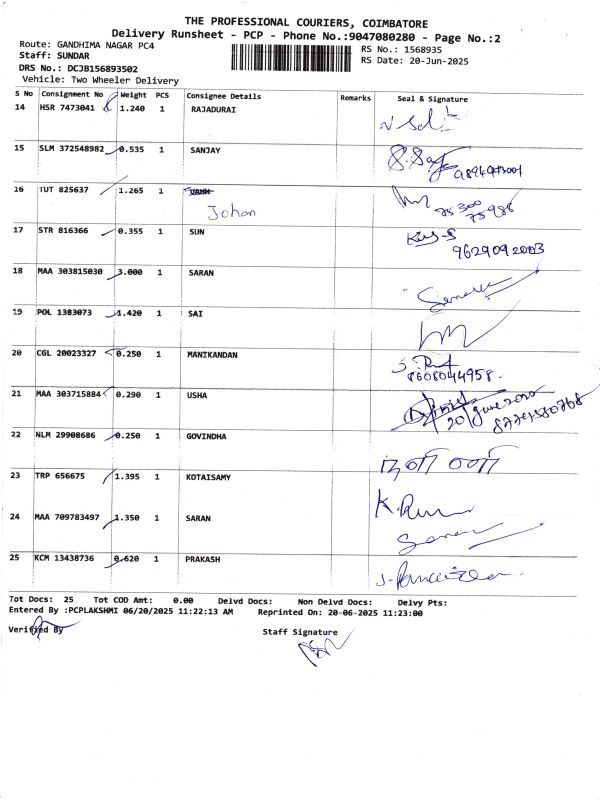 THE PROFESSIONAL COURIERS, COIMBATORE
Delivery Runsheet - PCP - Phone No.:9047080280 - Page No.:2
Route: GANDHIMA NAGAR PC4
RS No.: 1568935
Staff: SUNDAR
RS Date: 20-Jun-2025
DRS No.: DCJB156893502
Vehicle: Two Wheeler Delivery
S No Consignment No Weight PCS Consignee Details Remarks Seal & Signature
14 HSR 7473041 1.240 1 RAJADURAI
15 SLM 372548982 0.535 1 SANJAY
16 TUT 825637 1.265 1
Johan
75300
75988
17 STR 816366 0.355 1 SUN
9629092003
18 MAA 303815030 3.000 1 SARAN
19 POL 1383073 1.420 1 SAI
20 CGL 20023327 0.250 1 MANIKANDAN
8608044958
21 MAA 303715884 0.290 1 USHA
22 NLM 29908686 0.250 1 GOVINDHA
23 TRP 656675 1.395 1 KOTAISAMY
24 MAA 709783497 1.350 1 SARAN
25 KCM 13438736 0.620 1 PRAKASH
Tot Docs: 25 Tot COD Amt: 0.00 Delvd Docs: Non Delvd Docs: Delvy Pts:
Entered By :PCPLAKSHMI 06/20/2025 11:22:13 AM Reprinted On: 20-06-2025 11:23:00
Verified By
Staff Signature